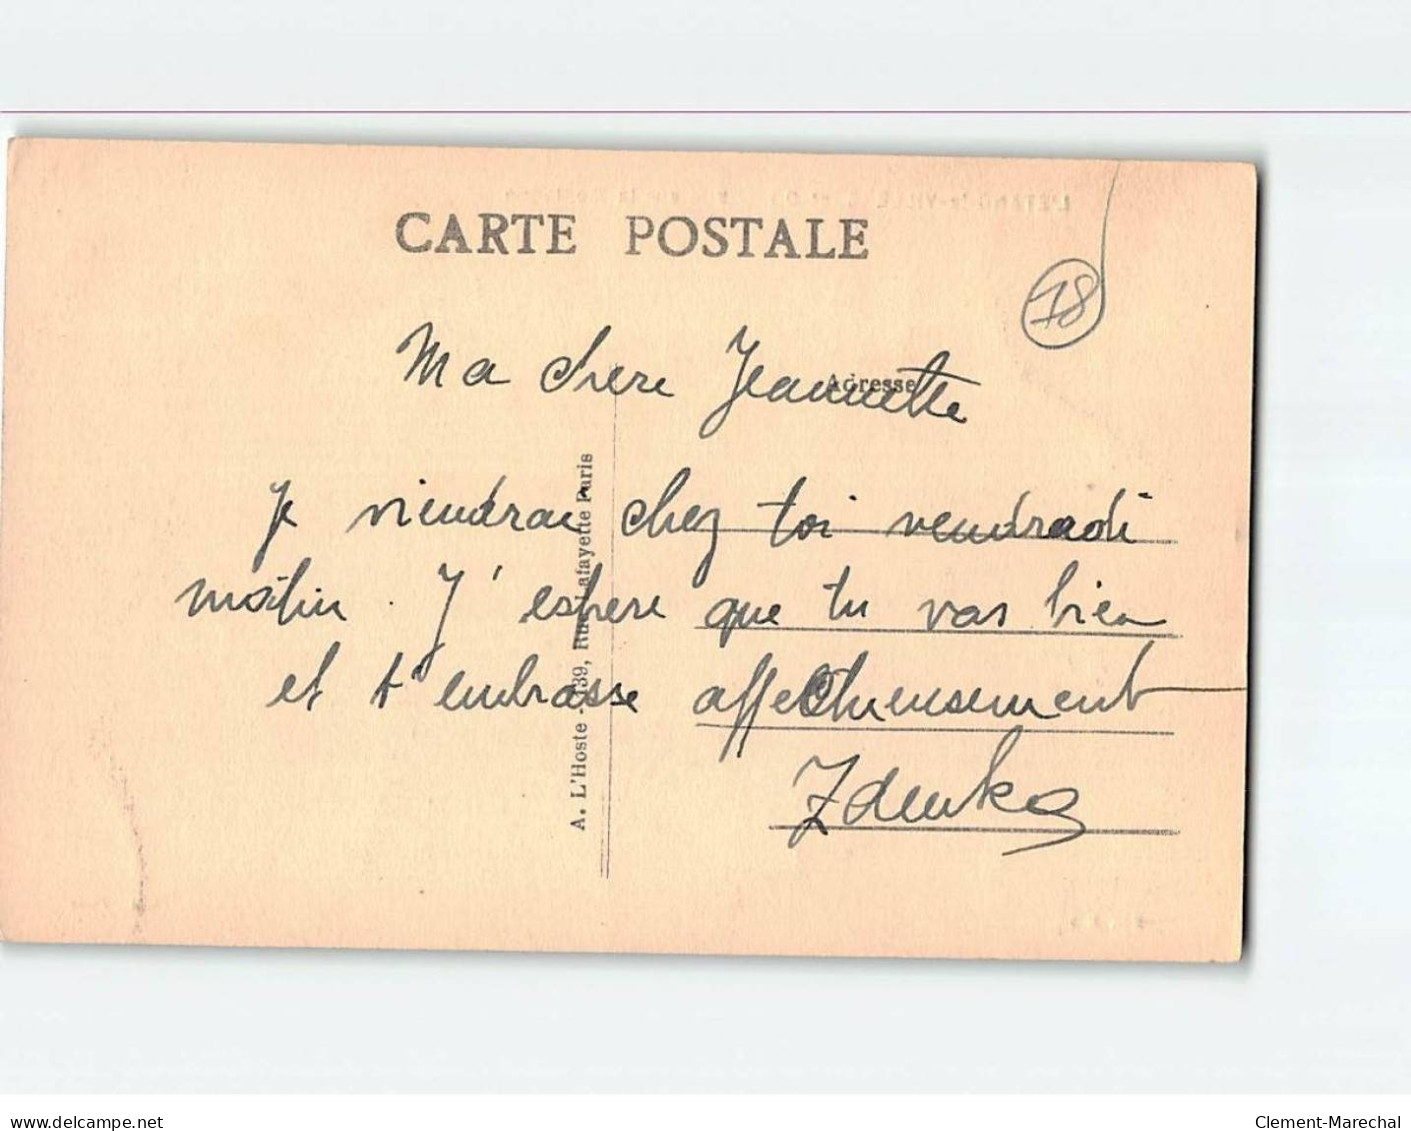 CARTE POSTALE
78
Ma chere Jeannette
Adresse
Je viendrai chez toi vendredi
matin. J'espere que tu vas bien
et t'embrasse affectueusement
Zdenka
A. L'Hoste - 139, Rue Lafayette Paris
www.delcampe.net
Clement-Marechal